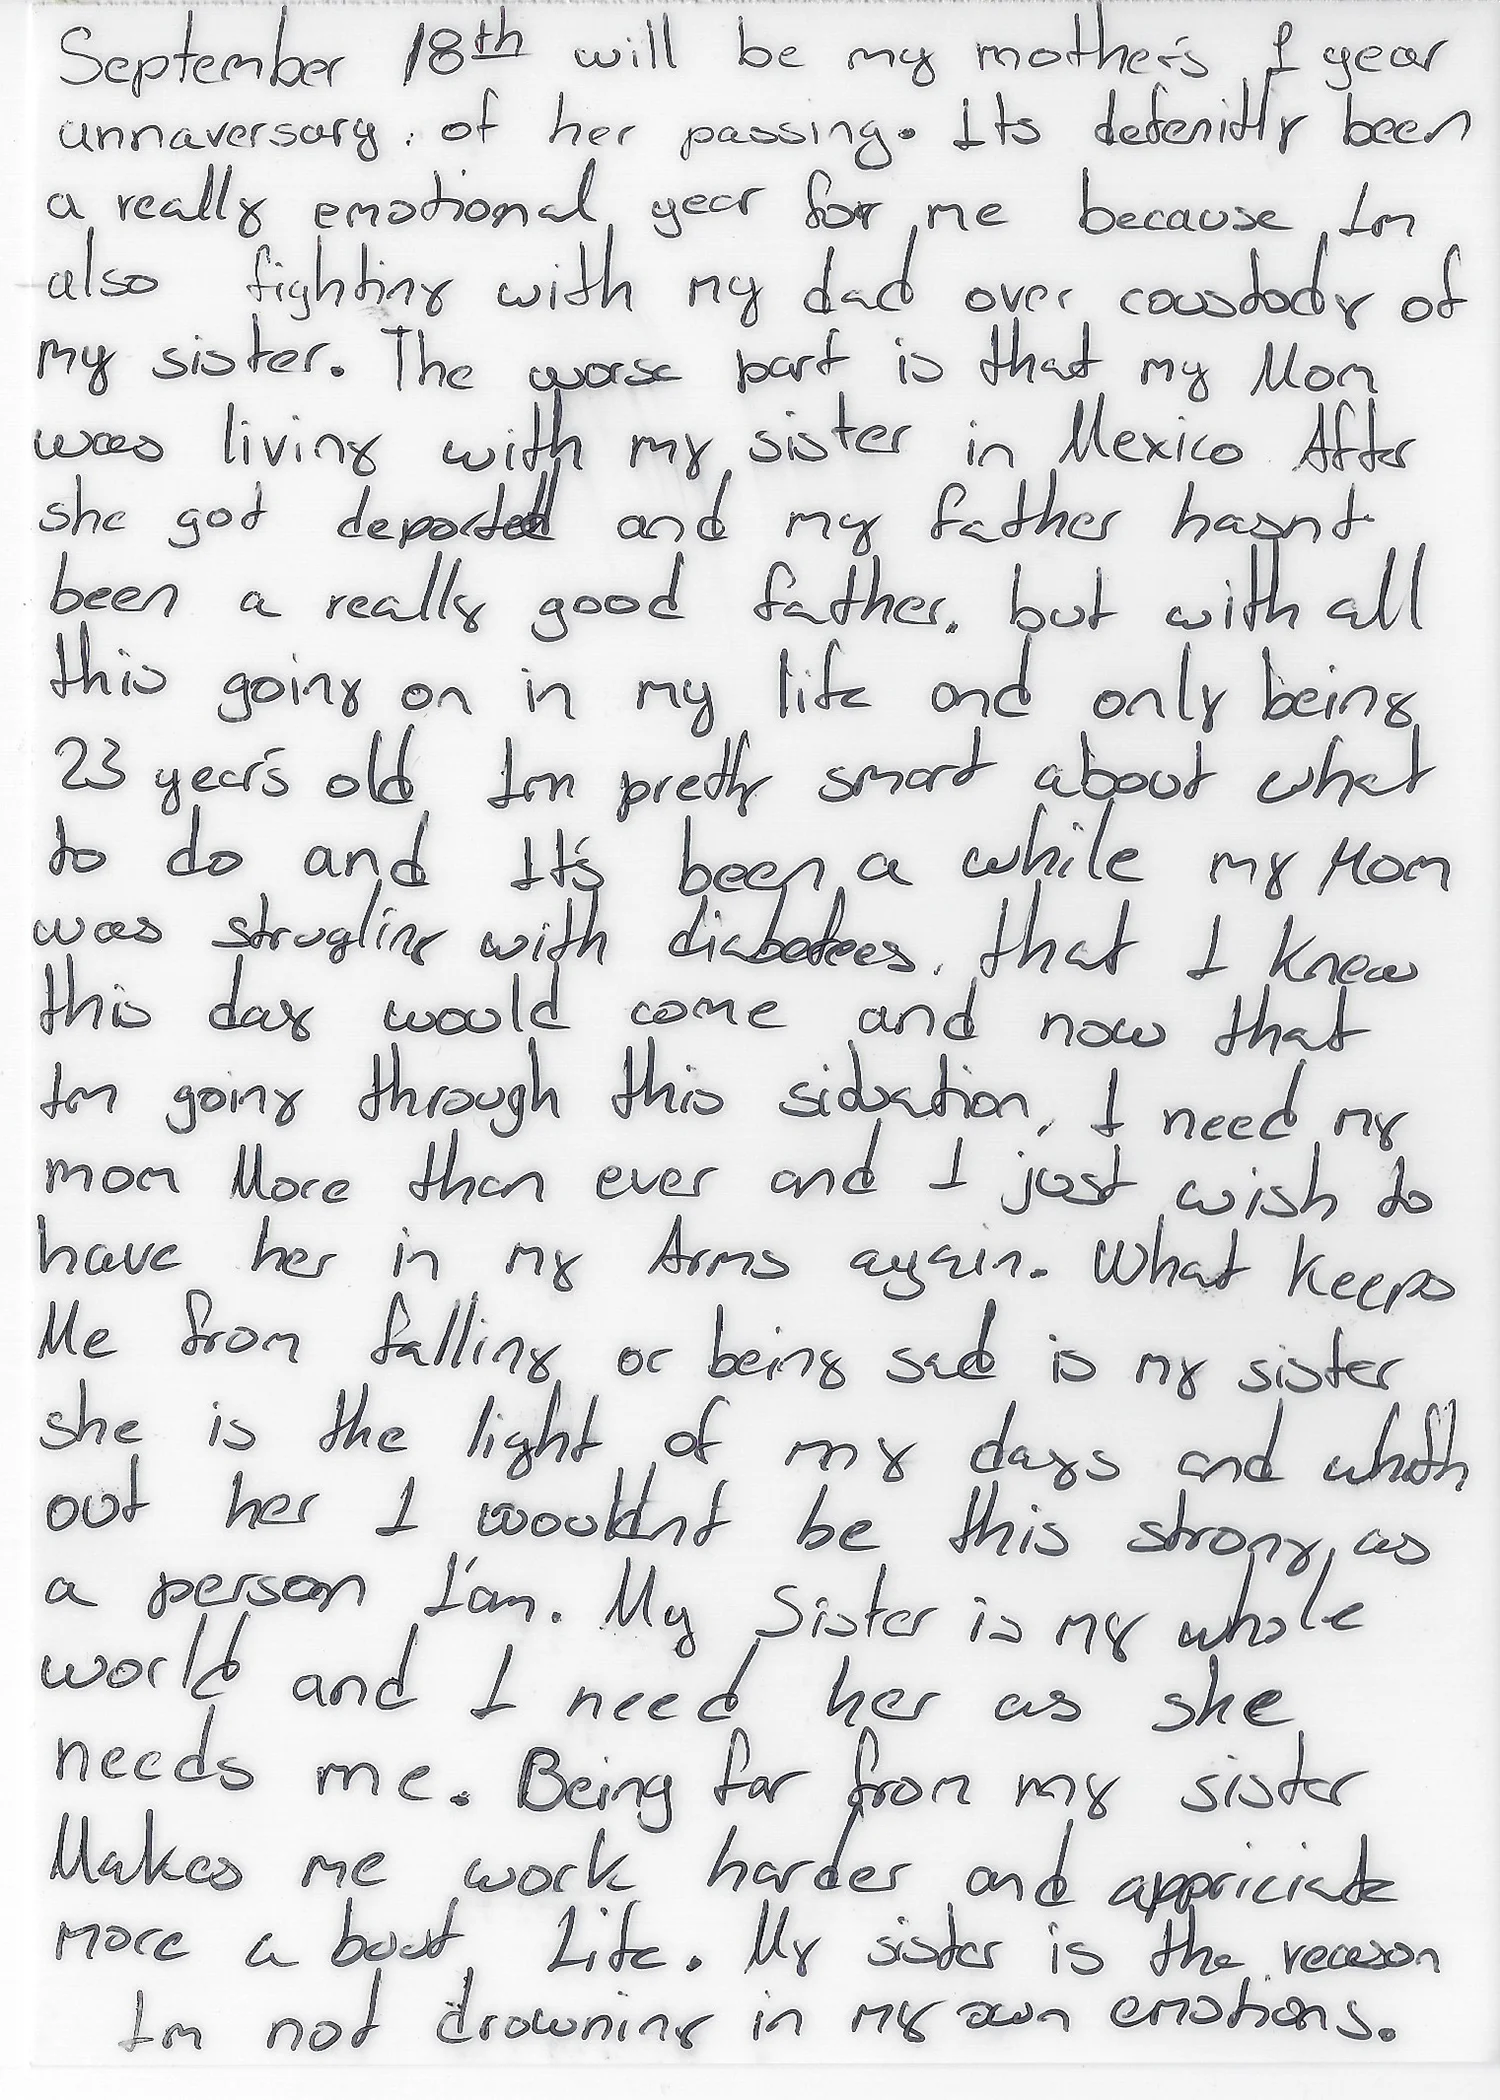 September 18th will be my mother's 1 year
annaversary. of her passing. Its defenitly been
a really emotional year for me because Im
also fighting with my dad over coustody of
my sister. The worse part is that my Mom
was living with my sister in Mexico After
she got deported and my father hasnt
been a really good father. but with all
this going on in my life and only being
23 year's old Im pretty smart about what
to do and It's been a while my Mom
was strugling with diabetees. that I knew
this day would come and now that
Im going through this siduation, I need my
mom More than ever and I just wish to
have her in my Arms again. What keeps
Me from falling or being sad is my sister
she is the light of my days and whith
out her I wouldnt be this strong as
a person I'am. My Sister is my whole
world and I need her as she
needs me. Being far from my sister
Makes me work harder and appriciate
more a bout Life. My sister is the reason
Im not drowning in my own emotions.